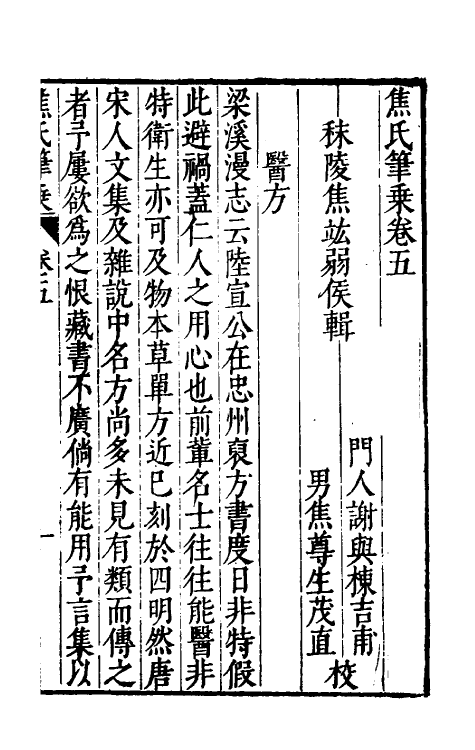 焦氏筆乗卷五
秣陵焦竑弱侯輯
門人謝與棟吉甫
男焦尊生茂直
校
醫方
梁溪漫志云陸宣公在忠州裒方書度日非特假
此避禍蓋仁人之用心也前輩名士往往能醫非
特衛生亦可及物本草單方近已刻於四明然唐
宋人文集及雜說中名方尚多未見有類而傳之
者予屢欲爲之恨藏書不廣倘有能用予言集以
焦氏筆乗 卷五 一